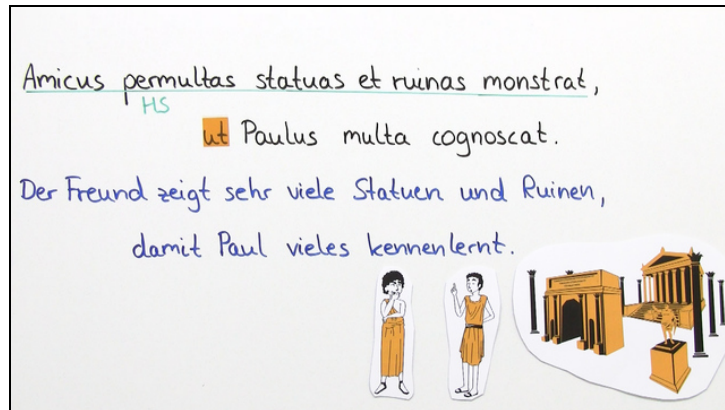 Amicus permultas statuas et ruinas monstrat,
HS
ut Paulus multa cognoscat.
Der Freund zeigt sehr viele Statuen und Ruinen,
damit Paul vieles kennenlernt.